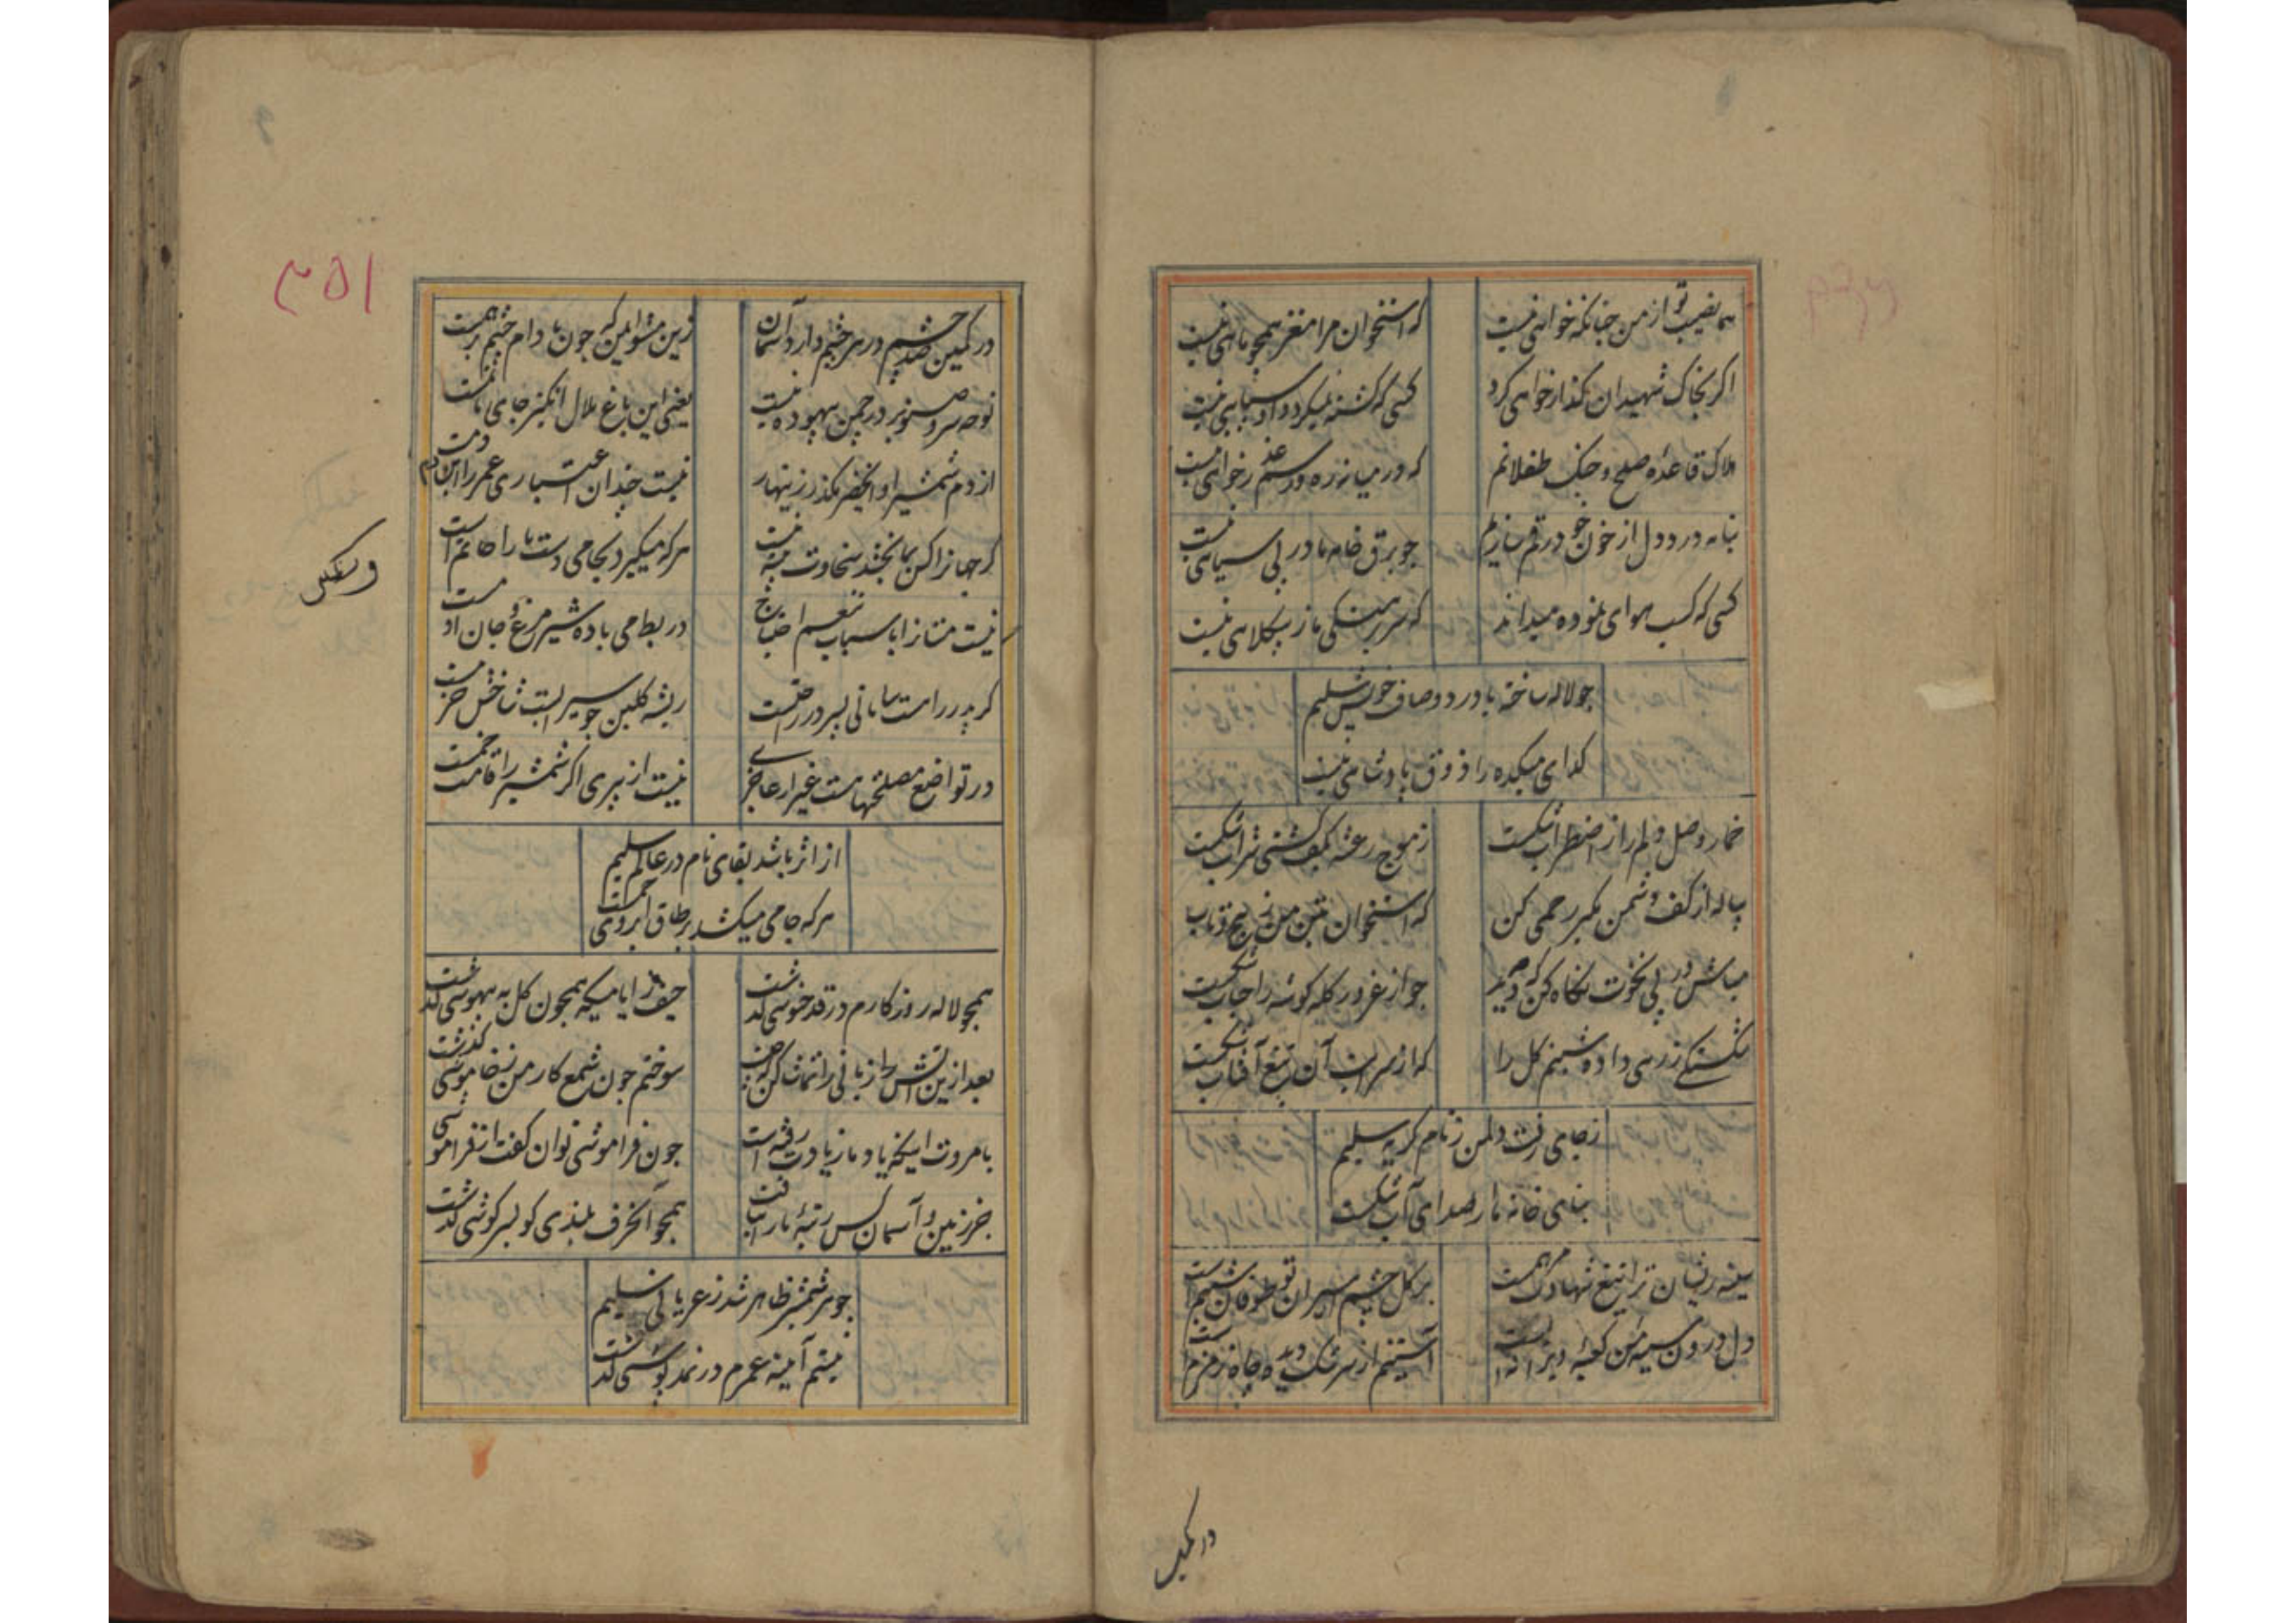 هما نصیب تو از من چنانکه خواهی نیست
که استخوان مرا مغز همچو ماهی نیست
اکر بخاک شهیدان کذار خواهی کرد
کسی که کشته نمیکردد او سپاهی نیست
هلاک قاعده صلح و جنک طفلانم
که در میانه ره و رسم عذر خواهی نیست
بنامه درد دل از خون خود رقم سازیم
چو برق خامه ما در پی سیاهی نیست
کسی که کسب هوای نموده میداند
که سر برهنکی ما ز بیکلاهی نیست
چو لاله ساخته با درد و صاف خویش سلیم
کدای میکده را ذوق پادشاهی نیست
خمار وصل دلم را ز اضطراب شکست
ز موج رعشه بکف کشتی شراب شکست
پیاله از کف دشمن مکیر رحمی کن
که استخوان تن من ز پیچ و تاب
مباش در پی نخوت نکاه کن که چه دید
چو از غرور کله کوشه را حباب شکست
شکستکی زرسی داده شبنم کل را
که از سرایت آن تیغ آفتاب شکست
ز جای رفت دلمن ز نام کریه سلیم
بنای خانه ما را صدای آب شکست
سینه ریشان ترا تیغ شهادت مرهمست
بر کل چشم اسیران تو طوفان شبنم است
دل درون سینه من کعبه ویرانه است
آستینم از سرشک دیده چاه زمزم است
در کمین
۳۵۱
در کمین صد چشم در هر چشم دارد آسمان
زین مشو ایمن که چون بادام چشم بر همست
نوحه سرو صنوبر در چمن بیهوده نیست
یعنی این باغ ملال انکیز جای ماتمست
از دم شمشیر او ای خضر مکذر زینهار
نیست چندان اعتباری عمر را این دم دمست
کر جهانرا کس بما بخشد سخاوت پیشه نیست
هر که میکیرد بجامی دست ما را حاتم است
نیست مستانرا باسباب تنعم احتیاج
در بط می باده شیر مرغ و جان آدمست
کر پدر را هست سامانی پسر در راحتست
ریشه کلبن چو سیرابست شاخش خرمست
در تواضع مصلحتها هست غیر از عاجزی
نیست از پیری اکر شمشیر را قامت خمست
از اثر باشد بقای نام در عالم سلیم
هر که جامی میکشد بر طاق ابروی جمست
همچو لاله روزکارم در قدح نوشی کذشت
حیف از ایامیکه همچون کل به بیهوشی کذشت
بعد ازین آتش زبانی را تماشا کن که چیست
سوختم چون شمع کار من ز خاموشی کذشت
بامروت اینکه یاد ما ز یادت رفته است
چون فراموشی توان کفت از فراموشی
جز زمین و آسمان کس رتبه ما را نیافت
همچو آنحرف بلندی کو بسر کوشی کذشت
جوهر شمشیر ظاهر شد ز عریانی سلیم
نیستم آیینه عمرم در نمد پوشی کذشت